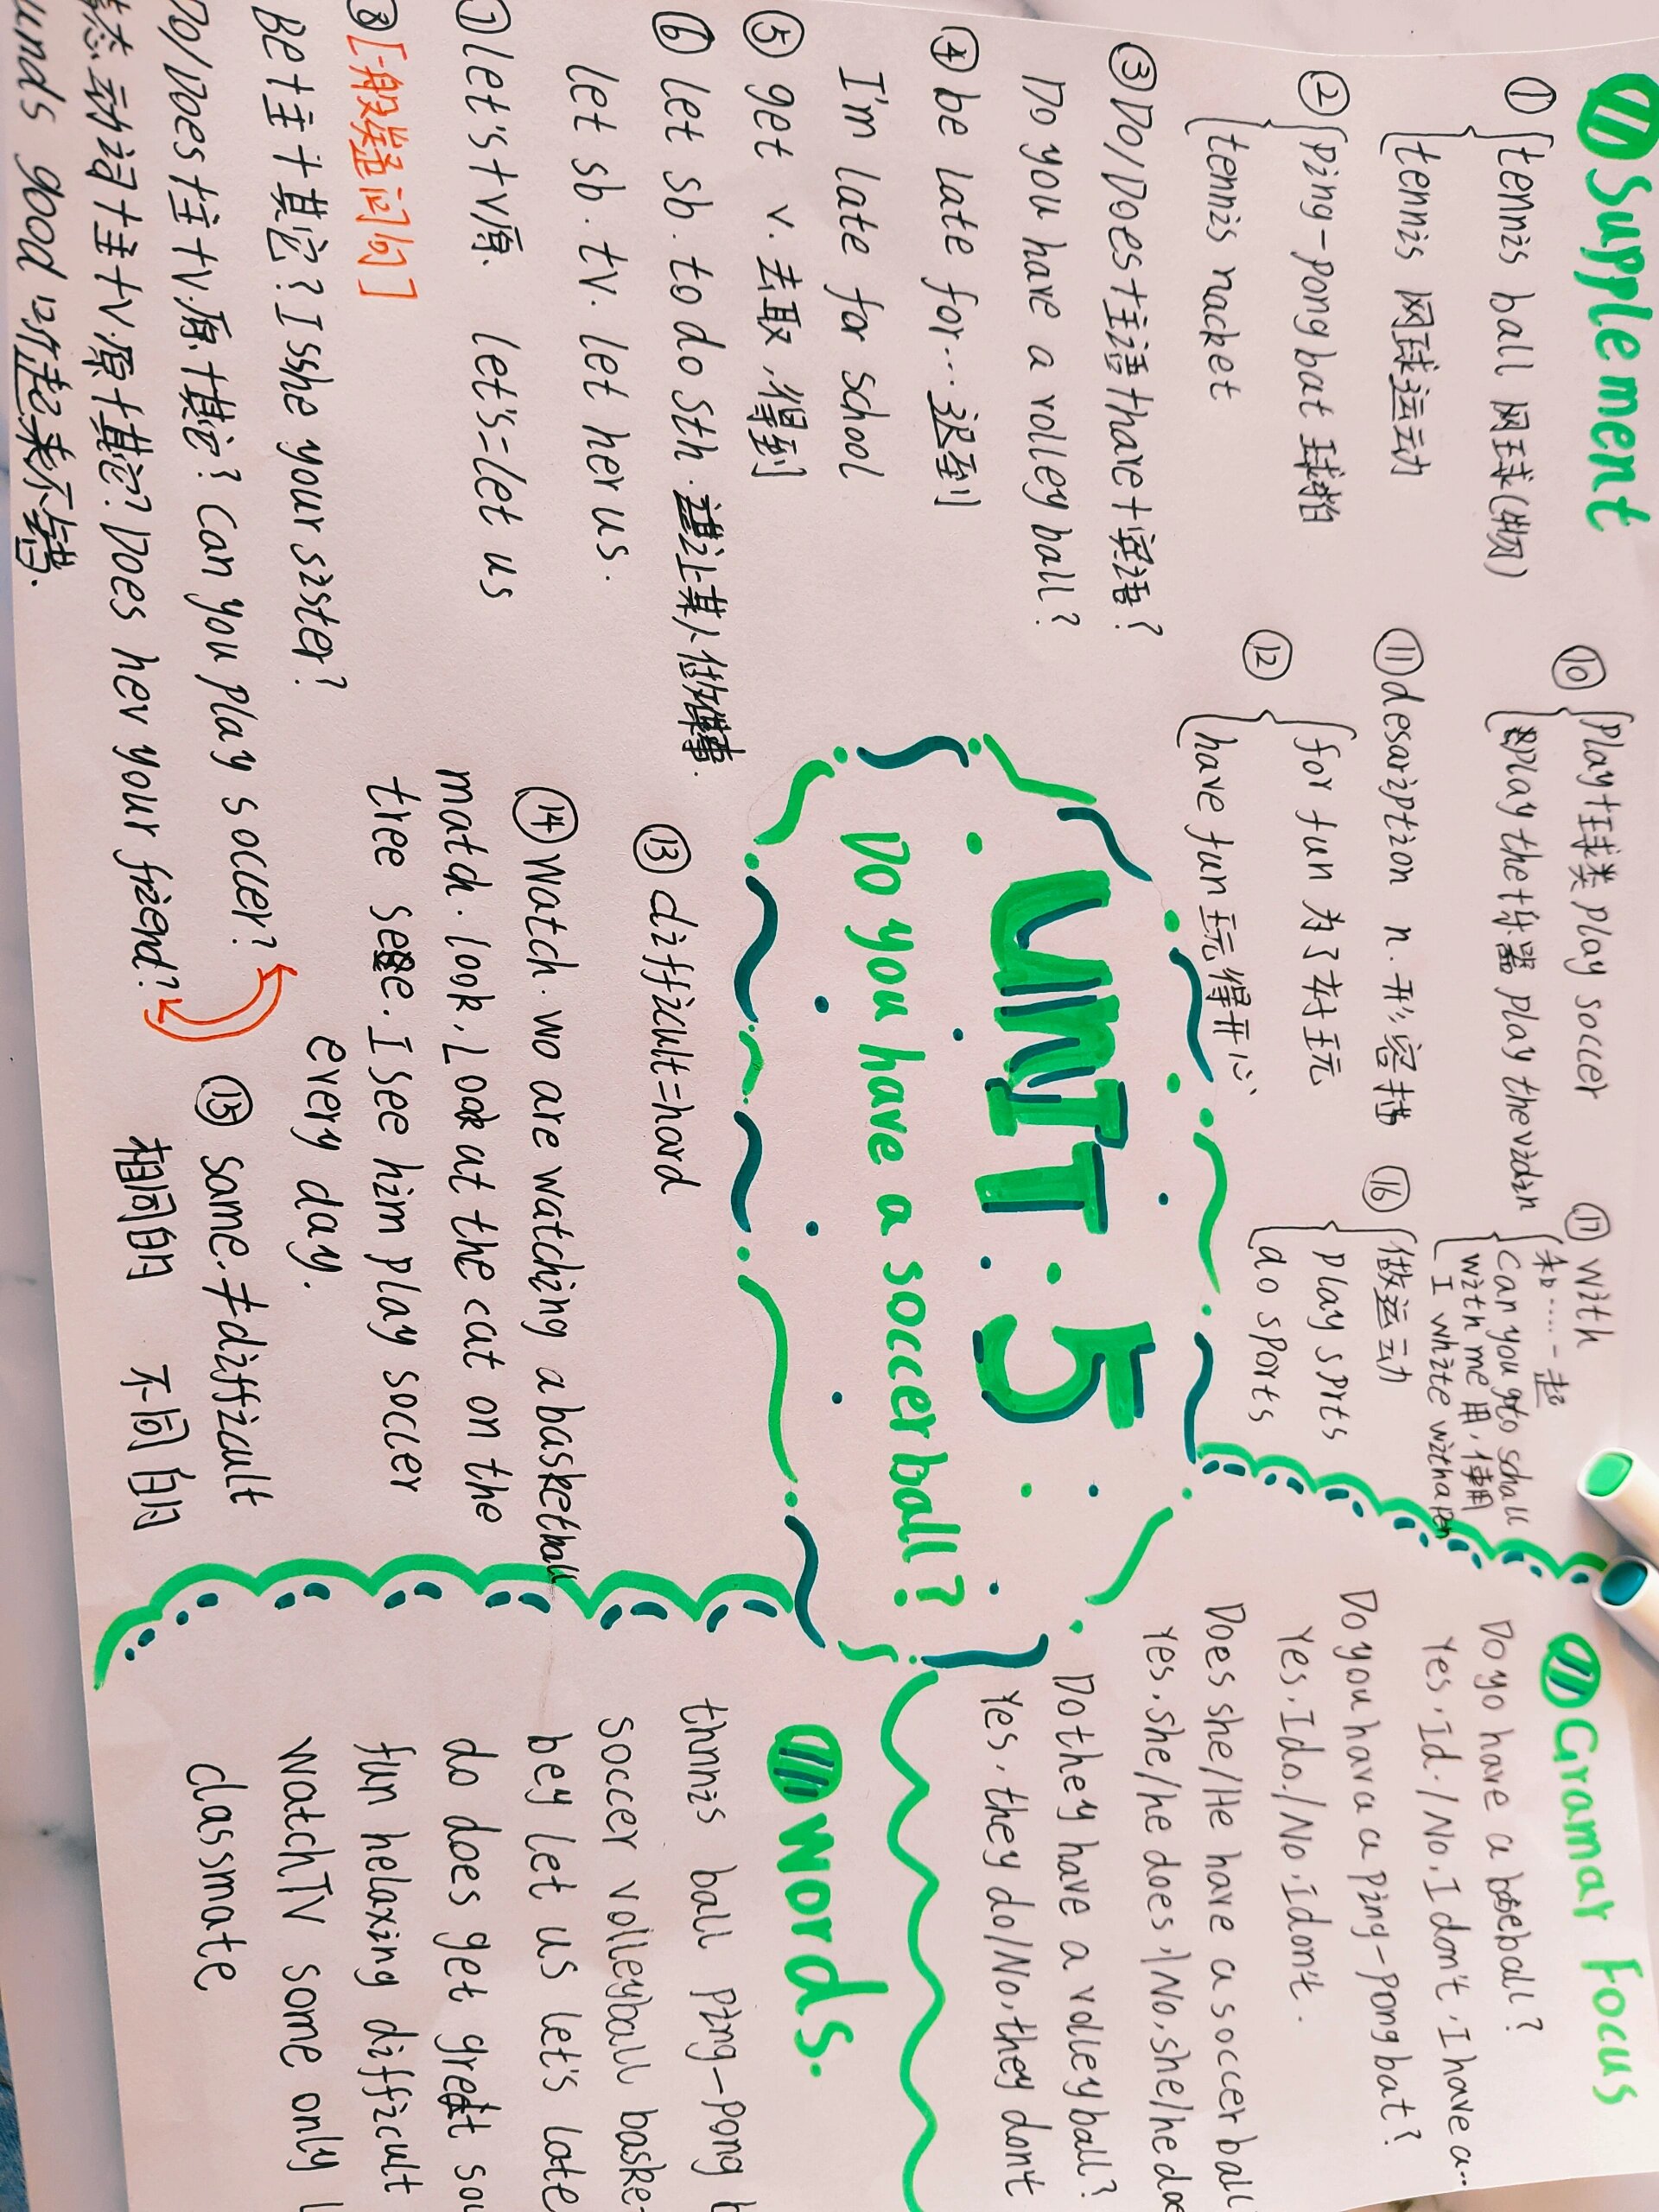 Supplement
① tennis ball 网球(物)
tennis 网球运动
② Ping-pong bat 球拍
tennis racket
③ Do/Does+主语+have+宾语?
Do you have a volley ball?
④ be late for…迟到
I'm late for school
⑤ get v. 去取,得到
⑥ let sb. to do sth. 让某人做某事.
let sb. tv. let her us.
⑦ let's+v原. let's=let us
⑧[一般疑问句]
Be+主+其它? Is she your sister?
Do/Does+主+v.原+其它? Can you play soccer?
态动词+主+v.原+其它? Does her your friend?
unds good 听起来不错.
⑩ Play+球类 play soccer
play the+乐器 play the viDin
⑪ desaription n. 形容描
⑫ for fun 为了好玩
have fun 玩得开心
⑰ with
和……一起
can you go to schall
with me 用,使用
I white with a pen
⑯ 做运动
play sprts
do sports
UNIT.5
Do you have a soccer ball?
⑬ difficult=hard
⑭ watch. wo are watching a basketball
match. look, Look at the cat on the
tree see. I see him play soccer
every day.
⑮ same.≠difficult
相同的 不同的
Gramar Focus
Do yo have a baseball?
Yes, I d. / No. I don't, I have a…
Do you hava a Ping-Pong bat?
Yes, I do. / No, I don't.
Does she/He have a soccer ball
Yes, she/he does, / No, she/he doe
Do they have a volley ball?
Yes, they do/No, they don't
words.
thnnis ball ping-pong b
soccer volleyball baske-
bey let us let's late
do does get great sou
fun helaxing difficult
watch TV some only l
classmate